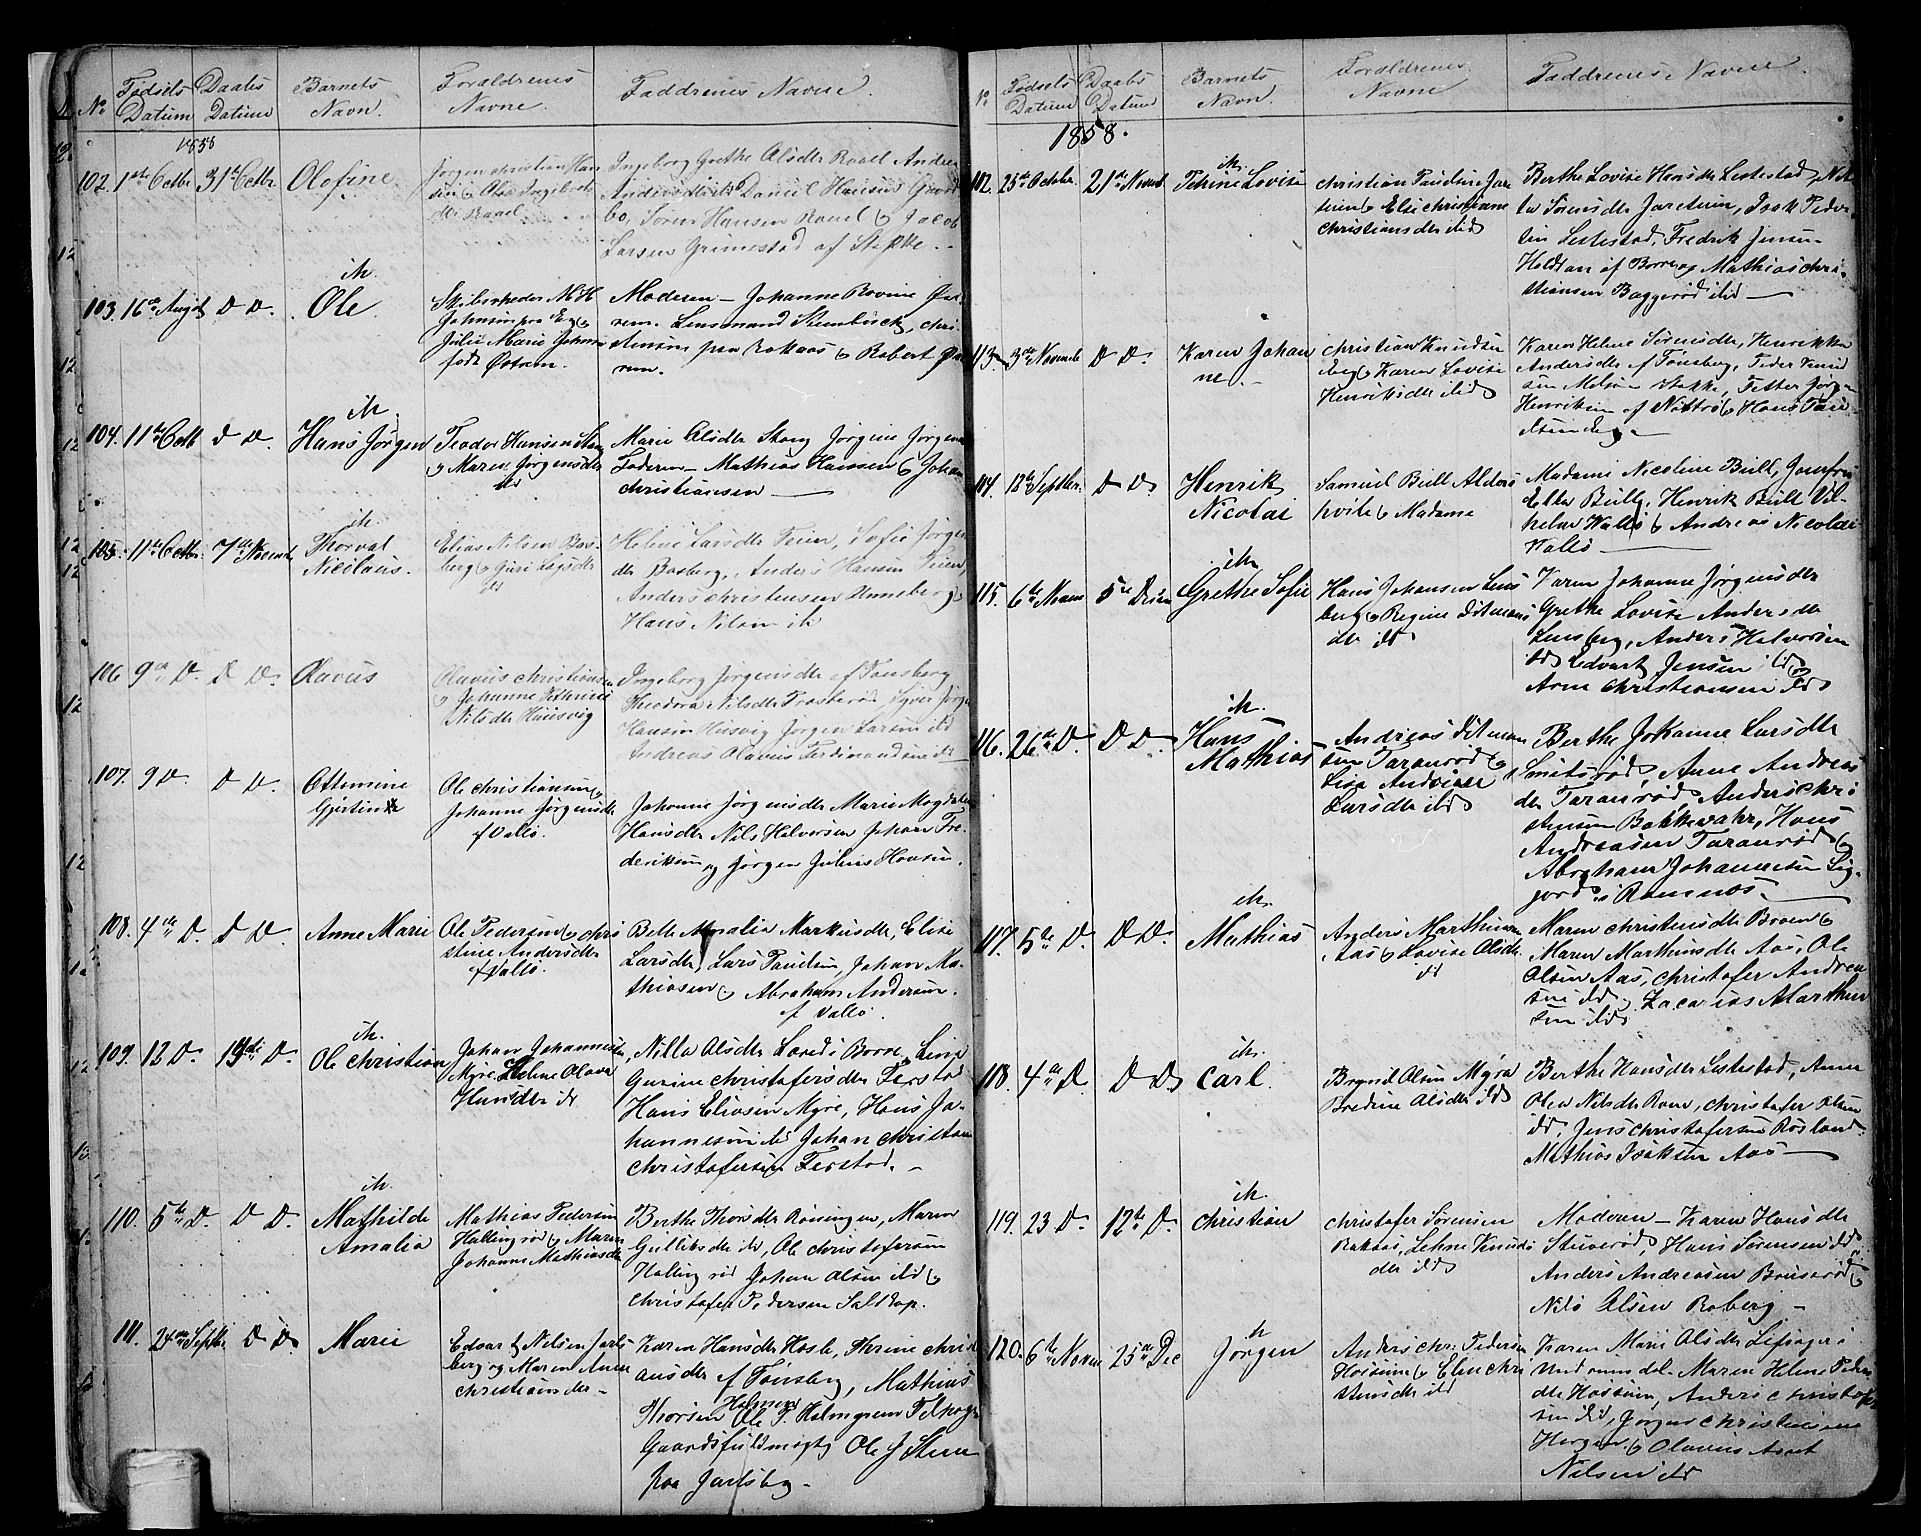 No Fødsels Datum Daabs Datum Barnets Navn. Forældrenes Navne. Faddrenes Navne.
1858
102. 1ste Octbr 31te Octbr Olofine
Jørgen Christian Han
Ingeborg Grethe Olsdtr Raael Andrea
Daniel Hansen
bo, Søren Hansen Raael & Jacob
Larsen Grimestad af Stokke.
ih.
103. 16de Augst D D. Ole
Johnsen paa Eeg &
Julie Marie Johnsen
født Østrem.
Moderen — Johanne Rovine Øst
rem. Lensmand Steenbuck, Chri
stensen paa Rakaas & Robert Øst
rem.
ih.
104. 11te Octb D D. Hans Jørgen
Teodor Hansen Stang
& Maren Jørgensdtr
ibd
Marie Olsdtr Stang Jørgine Jørgens
Faderen — Mathias Hansen & Johan
Christiansen —
ih.
105. 11te Octbr. 7de Novembr Thorval
Nicolaus.
Elias Nilsen Bas-
berg & Guri Larsdtr
ibd
Helene Larsdtr Feien, Sofie Jørgens
dtr Basberg, Anders Hansen Feien,
Anders Christensen Unneberg &
Hans Nilsen ib
106 9de D. D D. Olavus
Olavus Christiansen
& Johanne Kathrine
Nilsdtr Husvig
Ingeborg Jørgensdtr af Tønsberg
Theodora Nilsdtr Tr
Hansen Husvig Jørgen Larsen ibd
Andreas Olavus Ferdinandsen ibd
107. 9 D. D D. Ottomine
Gjertine
Ole Christiansen &
Johanne Jørgensdtr
af Vallø.
Johanne Jørgensdtr Marie Magdalene
Hansdtr Nils Halvorsen Johan Fre
deriksen og Jørgen Julius Hansen.
108. 4de D. D D. Anne Marie
Ole Pedersen & Chri
stine Andersdtr
af Vallø.
Belle Amalia Markusdtr, Elise
Larsdtr, Lars Paulsen, Johan Ma-
thiasen & Abraham Andersen.
af Vallø.
ih.
109. 12 D. D. Ole Christian
Johan Johannesen
Myre Helene Olava
Hansdtr ibd
Nilla Olsdtr i Borre, Lina
Gurine Christofersdtr Ferstad
Hans Eliasen Myre, Hans Jo-
hannesen ibd Johan Christian
Christofersen Ferstad. —
ih.
110. 5te D. D D. Mathilde
Amalia
Mathias Pedersen
Hallingrød & Maren
Johanne Mathiasdtr
Berthe Thorsdtr Røisingen, Maren
Gulliksdtr ibd, Ole Christofersen
Hallingrød Johan Olsen ibd &
Christofer Pedersen Saltkop.
111. 24de Septbr D D. Marie
Edvart Nilsen Jarls
berg og Maren Anne
Christiansdtr —
Karen Hansdtr Hasle, Thrine Christi
ansdtr af Tønsberg, Mathias
Thorsen Ole T. Holmgreen
Gaardsfuldmægtig Ole J Steen
paa Jarlsberg —
No Fødsels Datum Daabs Datum Barnets Navn. Forældrenes Navne Faddrenes Navne.
1858.
ih.
112. 25de October 21de Novemb Tehine Lovise
Christian Paulsen Jare
teien & Else Christiane
Christiansdtr ibd
Berthe Lovise Hansdtr Lestestad, Nil
la Sørensdtr Jareteien, Isak Peder
sen Lestestad, Fredrik Jensen
Holtan af Borre og Mathias Chri
stiansen Baggerød ibd —
113. 3die Novemb D D. Karen Johan
ne. —
Christian Knudsen
Eeg & Karen Lovise
Henriksdtr ibd
Karen Helene Sørensdtr, Henrikka
Andersdtr af Tønsberg, Peder Knud
sen Melsom Stokke, Petter Jørgen
Henriksen af Nøtterø & Hans Paul
sen Eeg —
114. 12te Septbr. D D. Henrik
Nicolai
Samuel Bull Alders
hvile & Madame
Madame Nicoline Bull, Jomfru
Ella Bull, Henrik Bull Vil-
helm Wallø & Andreas Nicolai
Vallø —
ih.
115. 6te Novem 5te Decem Grethe Sofie
Hans Johansen Lens
berg & Regine Ditmans
dtr ibd
Karen Johanne Jørgensdtr
Grethe Lovise Andersdtr
Lensberg, Anders Halvorsen
ibd Edvart Jensen ibd &
Arne Christiansen ibd
ih.
116. 26de D. D D. Hans
Mathias
Andreas Ditman
sen Taranrød &
Lise Andrine
Larsdtr ibd
Berthe Johanne Larsdtr
Smitsrød, Anne Andreas
dtr Taranrød Anders Chri
stensen Bakkevahr, Hans
Andreasen Taranrød &
Abraham Johannesen Sig-
jord i Ramnæs. —
ih.
117. 5te D. D D. Mathias
Anders Marthinsen
Aas & Lovise Olsdtr.
ibd
Maren Christensdtr Broen &
Maren Marthinsdtr Aas, Ole
Olsen Aas, Christofer Andrea
sen ibd & Zacarias Marthin
sen ibd
ih.
118. 4de D. D D Carl.
Brynil Olsen Myra
Bredine Olsdtr ibd
Berthe Hansdtr Lestestad, Anne
Olea Nilsdtr Roen, Christofer Olsen
ibd, Jens Christofersen Røsland.
Mathias Isaksen Aas —
ih.
119. 23 D. 12te D. Christian
Christofer Sørensen
Rakaas, Lehne Knuds
dtr ibd
Moderen — Karen Hansdtr
Stuverød, Hans Sørensen ibd
Anders Andreasen Bruserød &
Nils Olsen Roberg —
ih
120. 6te Novem 25de Dec Jørgen
Anders Chr: Pedersen
Hossum & Elen Chri
stensdtr ibd
Karen Marie Olsdtr i
Maren Helene Peders
dtr Hossum, Anders Christof
sen ibd, Jørgen Christiansen
Horgen & Olavus
Nilsen ibd